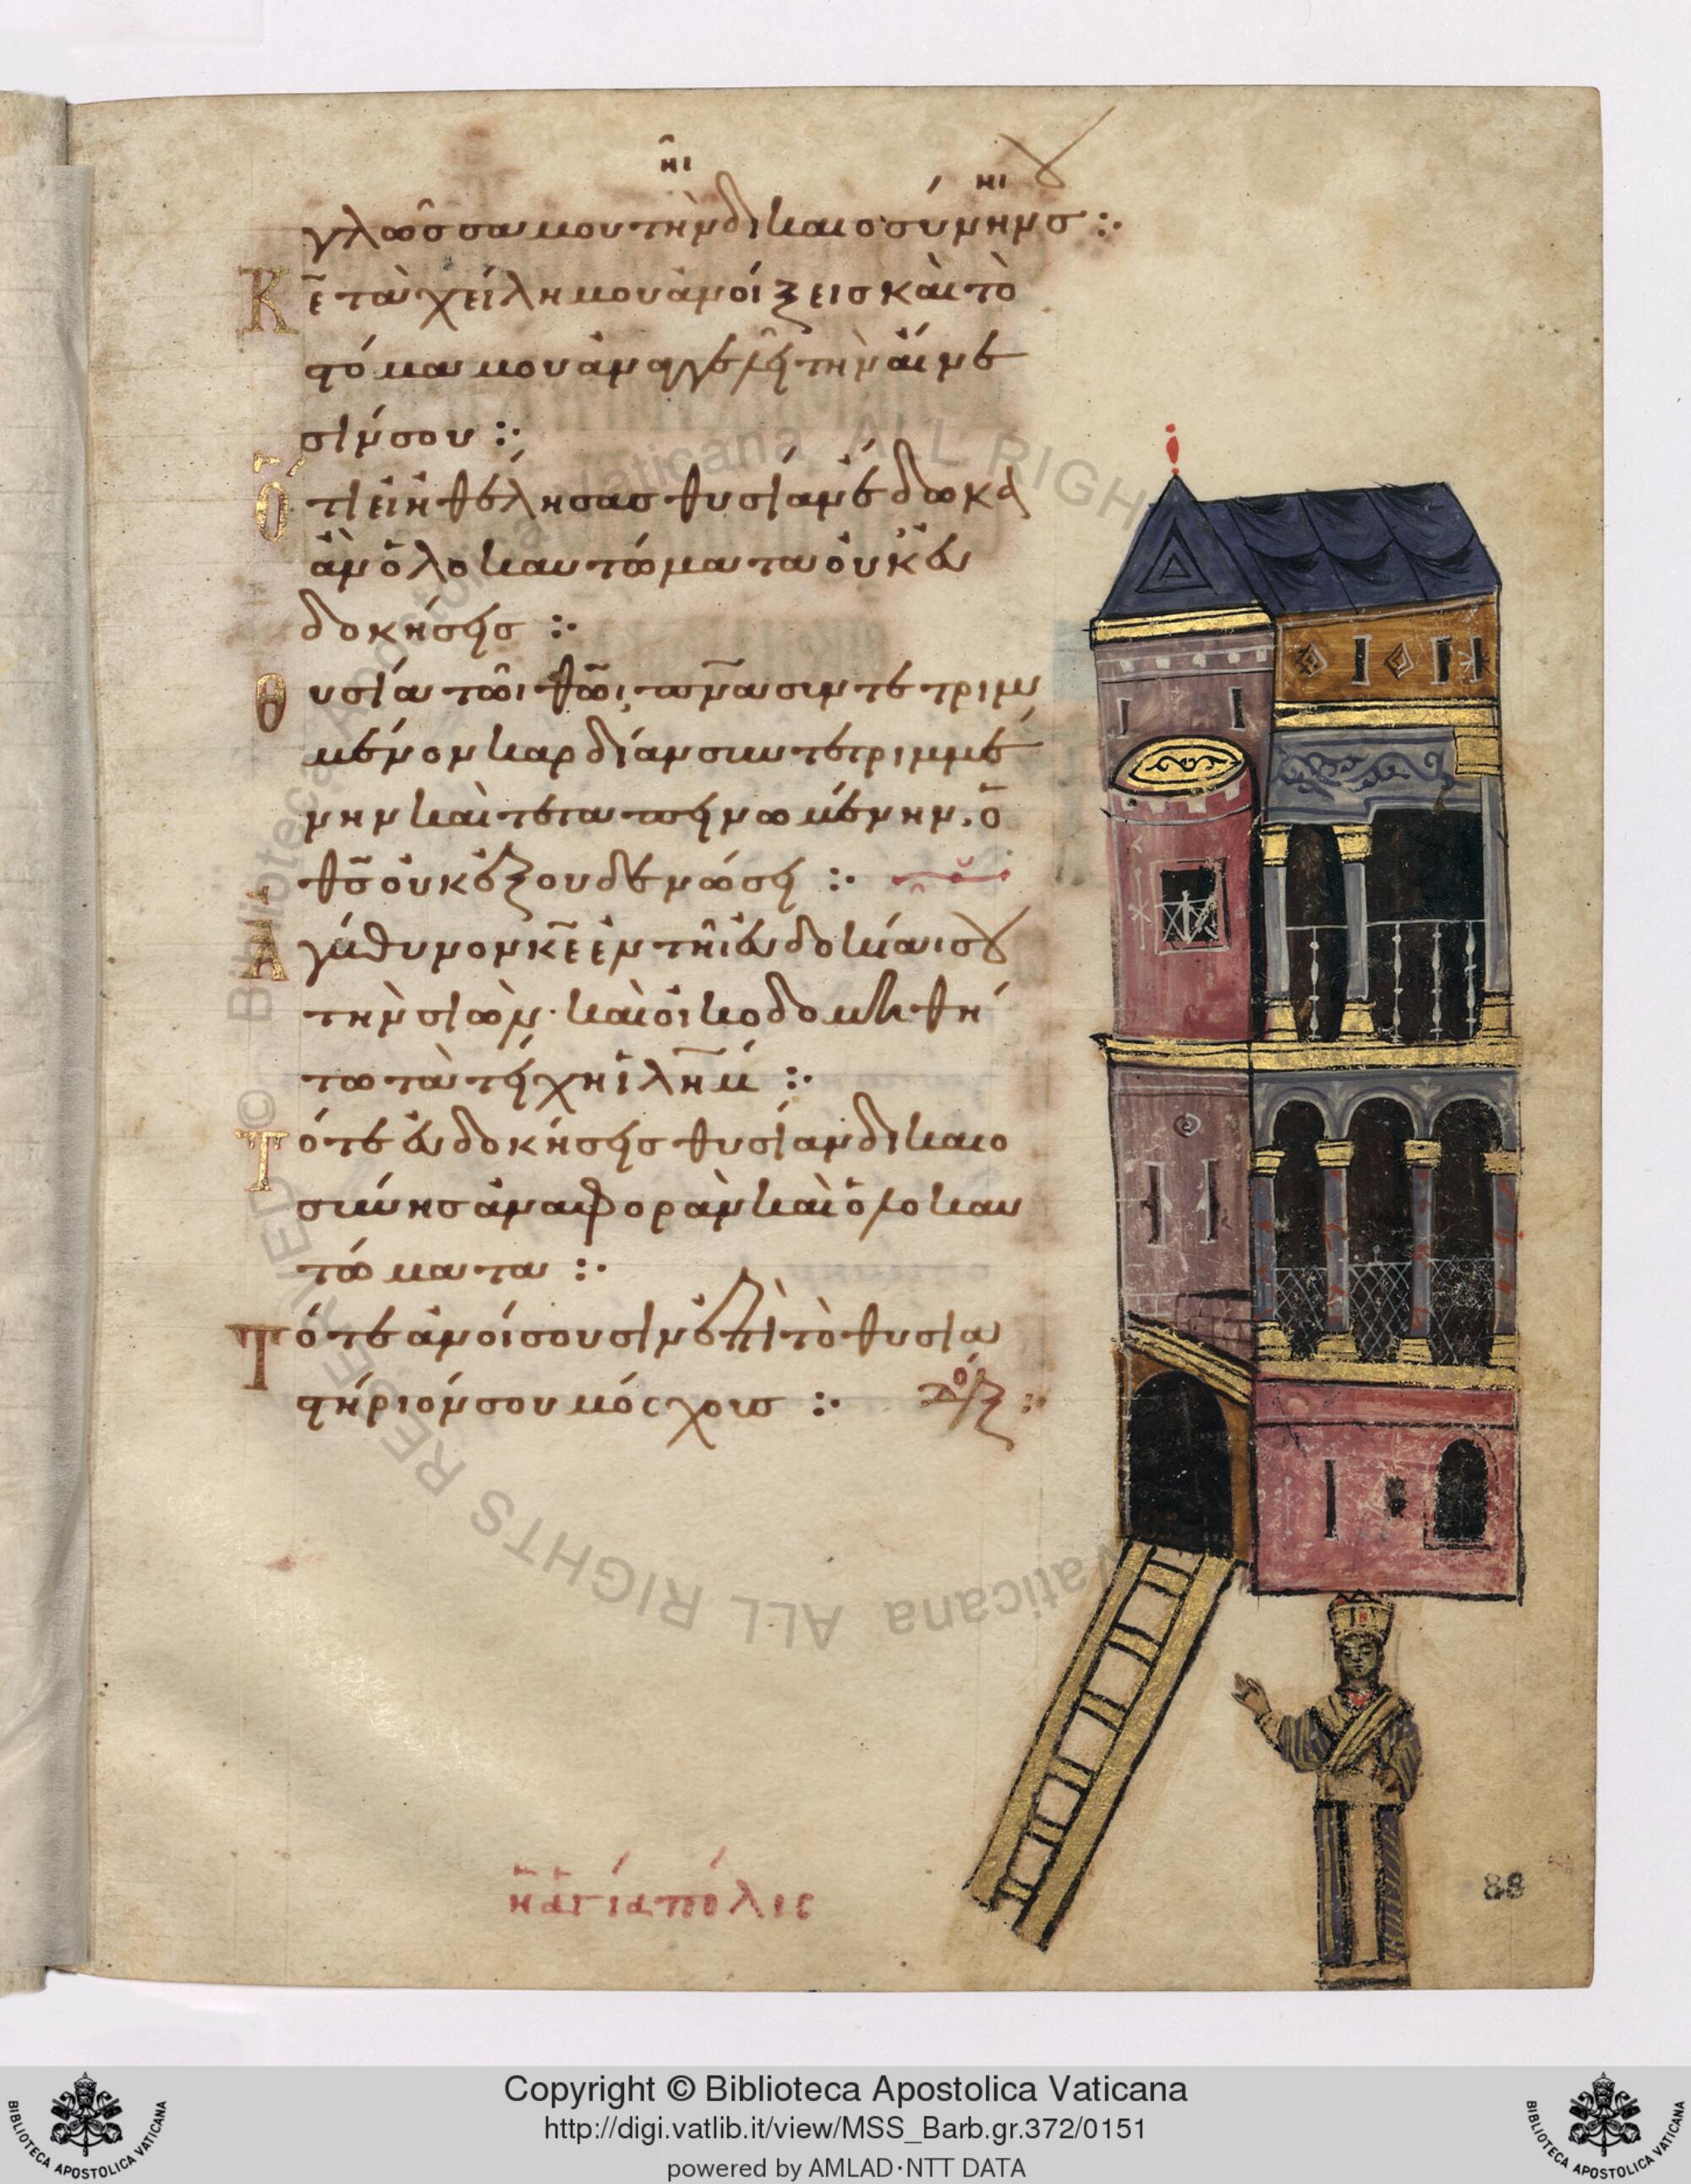 γλῶσσα μου τὴν δικαιοσύνην σου :·
Κε̄ τὰ χείλη μου ἀνοίξεις καὶ τὸ
στόμα μου ἀναγγελεῖ τὴν αἴνε
σίν σου :·
Ὅτι εἰ ἠθέλησας θυσίαν ἔδωκα
ἂν ὁλοκαυτώματα οὐκ εὐ
δοκήσεις :·
Θυσία τῶι θω̄ι πνᾱ συντετριμ
μένον καρδίαν συντετριμμέ
νην καὶ τεταπεινωμένην, ὁ
θς̄ οὐκ ἐξουδενώσει :·
Ἀγάθυνον κε̄ ἐν τῆι εὐδοκίαι σου
τὴν σιὼν· καὶ οἰκοδομηθή
τω τὰ τείχη ἱλήμ :·
Τότε εὐδοκήσεις θυσίαν δικαιο
σύνης ἀναφορὰν καὶ ὁλοκαυ
τώματα :·
Τότε ἀνοίσουσιν ἐπὶ τὸ θυσια
στήριόν σου μόσχους :· Δόξ :·
ἡ ἁγία πόλις
88
Copyright © Biblioteca Apostolica Vaticana
http://digi.vatlib.it/view/MSS_Barb.gr.372/0151
powered by AMLAD·NTT DATA
BIBLIOTECA APOSTOLICA VATICANA
BIBLIOTECA APOSTOLICA VATICANA